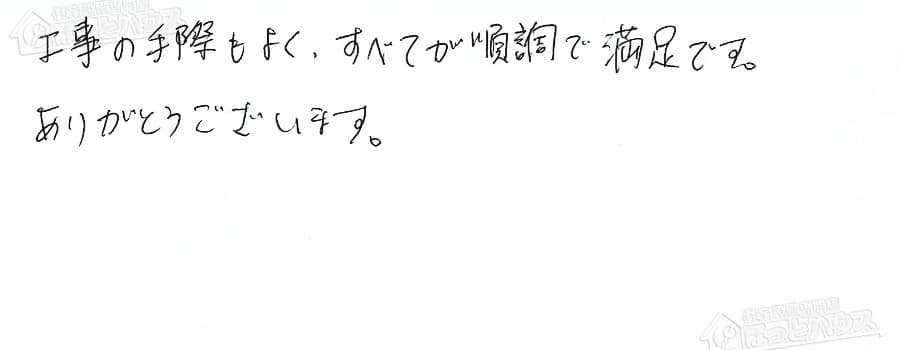 工事の手際もよく、すべてが順調で満足です。
ありがとうございます。
住宅設備専門店
ほっとハウス